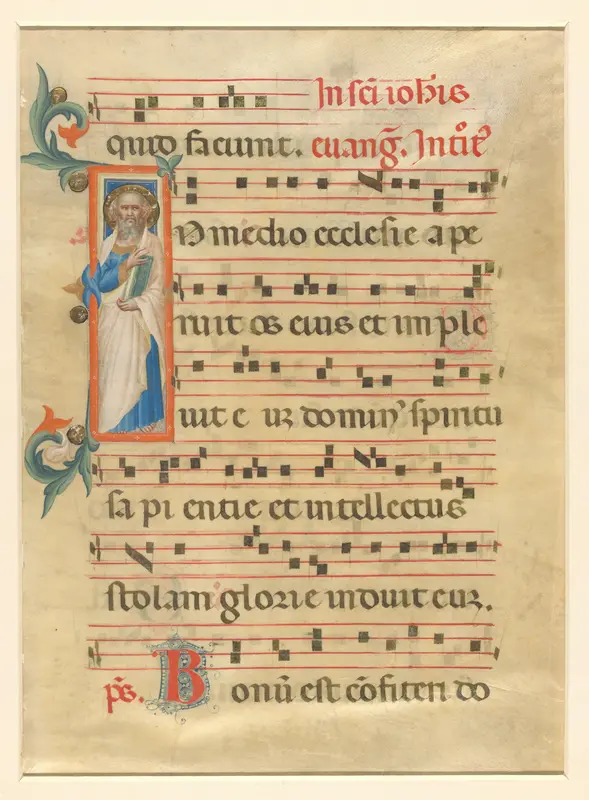 In sc̄i ioh̄is
quid faciunt. euang̃. Intͦit᷒
IN medio ecclesie ape
ruit os eius et imple
uit e uꝝ dominꝰ spiritu
sapi entie et intellectus
stolam glorie induit euꝝ.
p̄s. Bonū est cōfiteri do